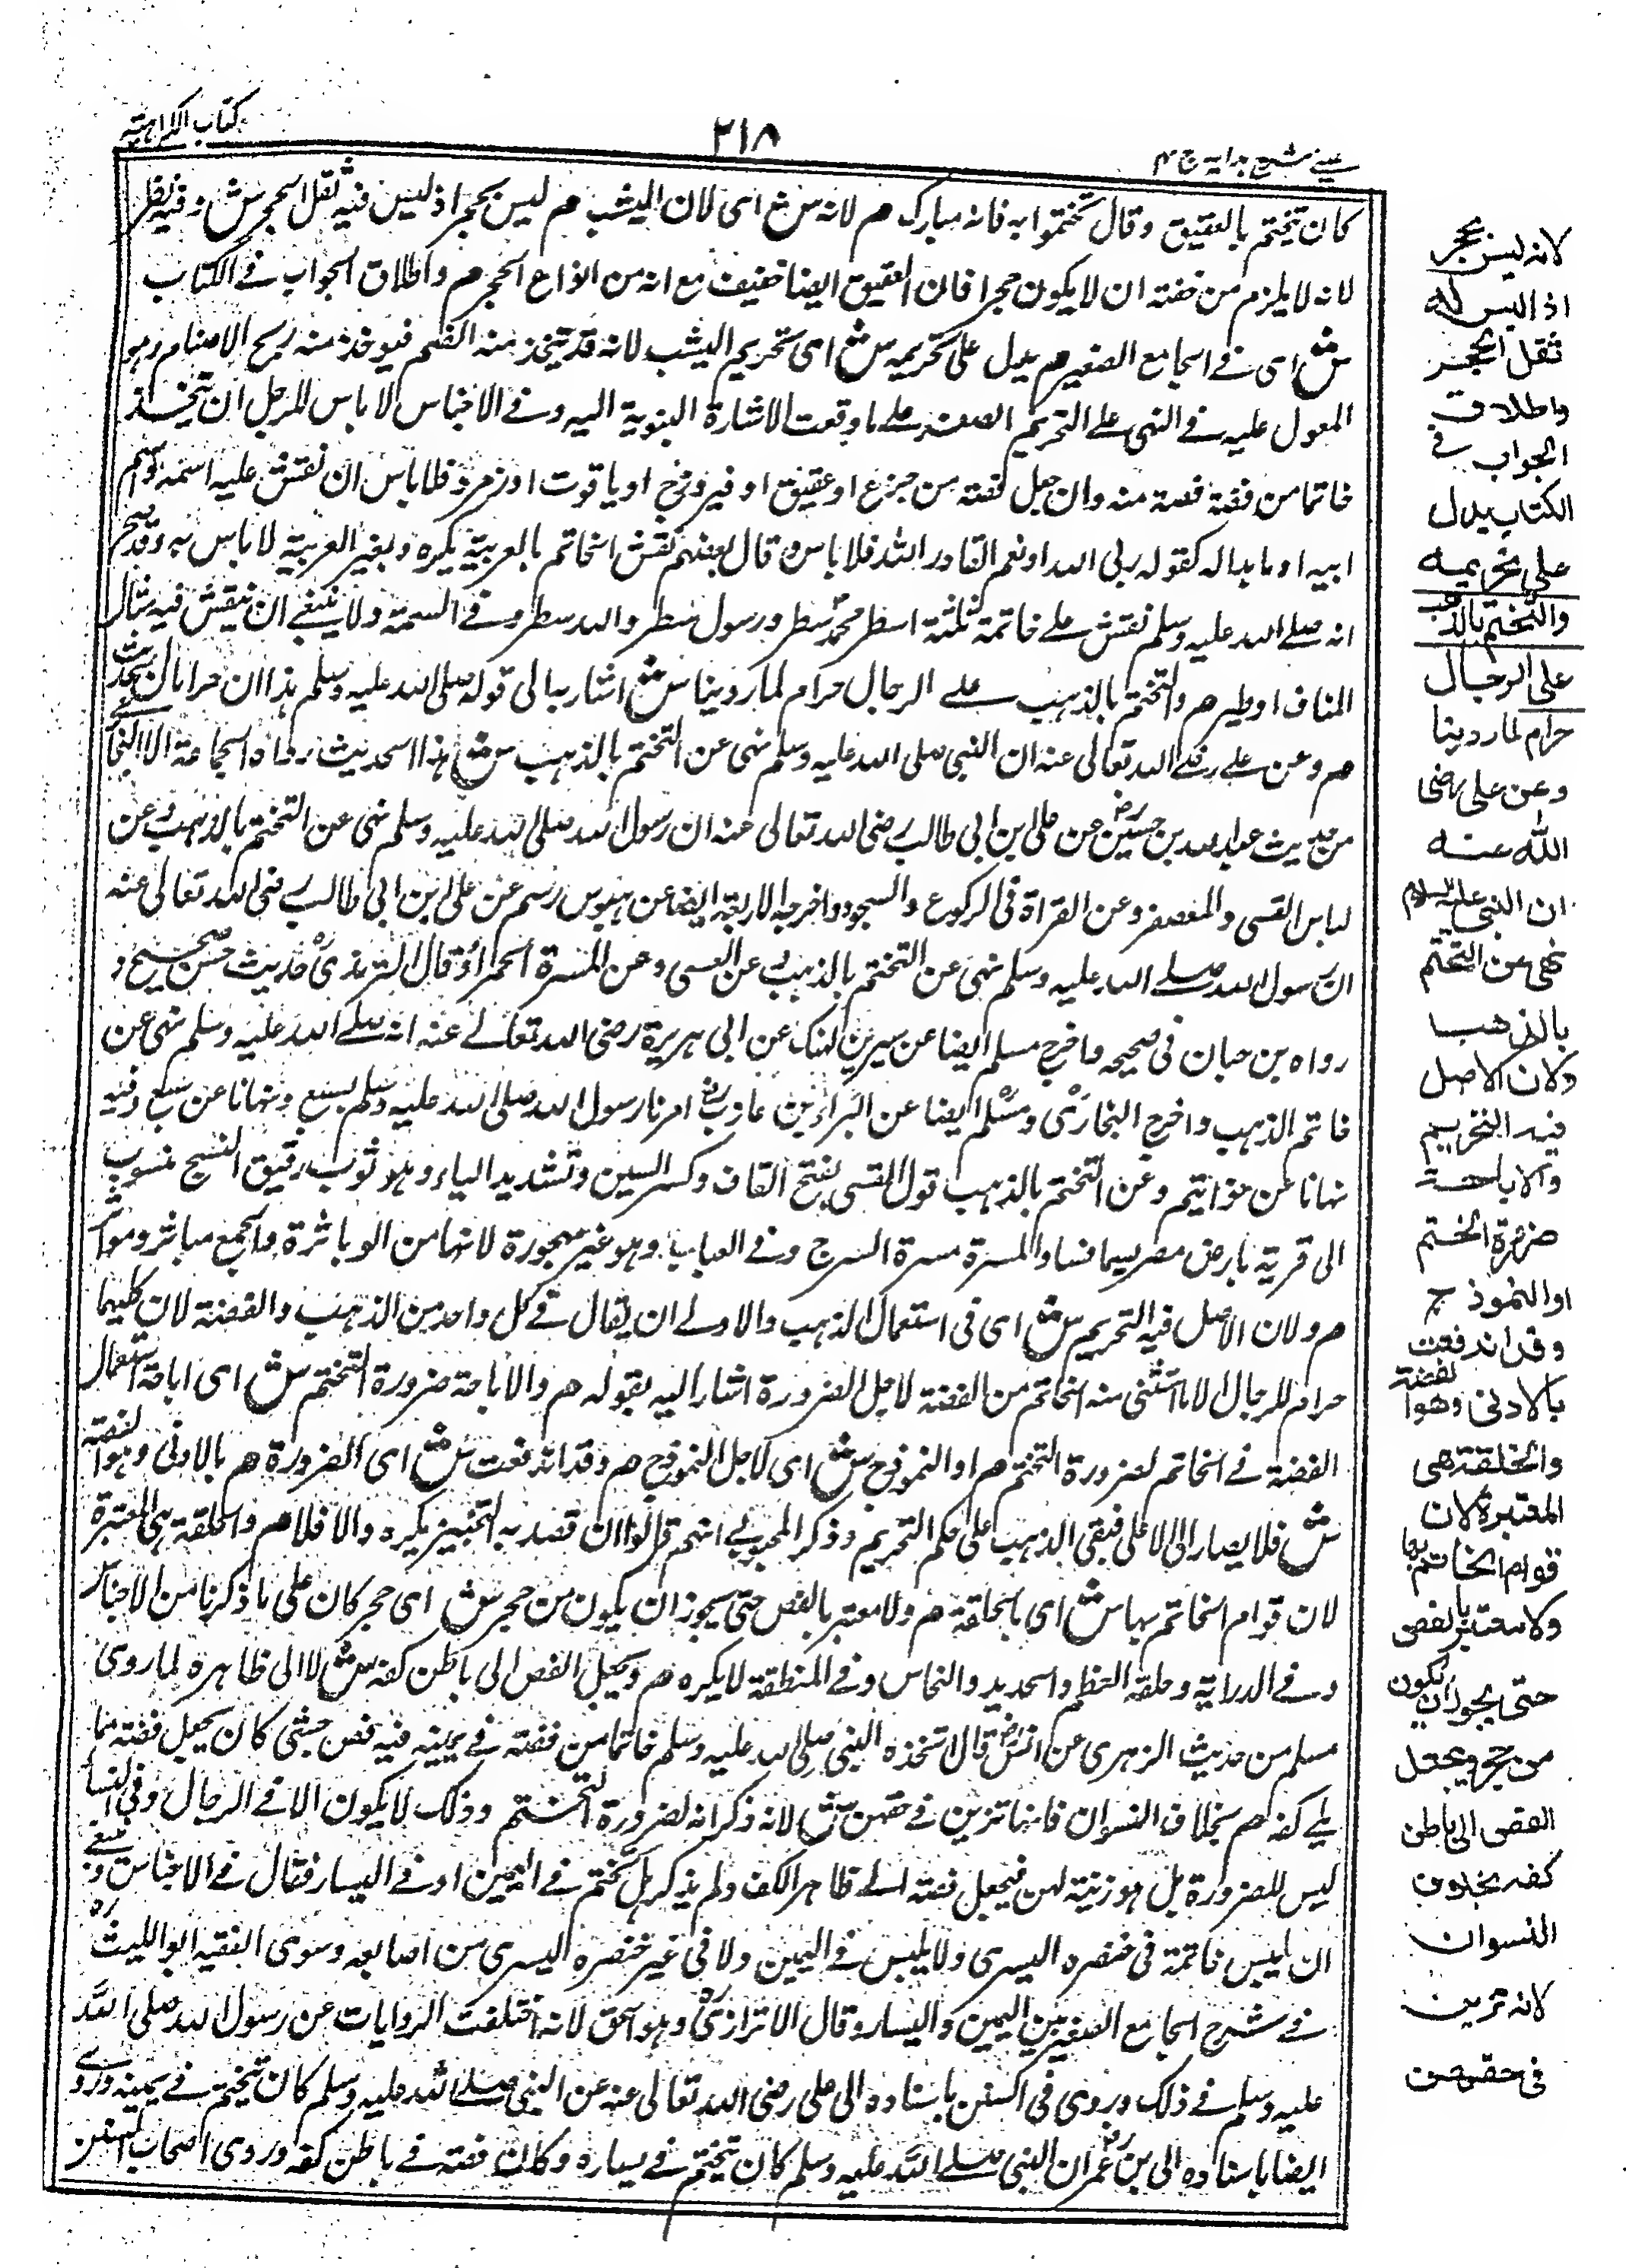 كتاب الكراهية
٢١٨
عينى شرح هداية ج ٤
كان يتختم بالعقيق وقال تختموا به فانه مبارك م لانه ش اى لان اليشب م ليس بحجر اذ ليس فيه ثقل الحجر ش وفيه نظر
لانه لا يلزم من خفته ان لا يكون حجرا فان العقيق ايضا خفيف مع انه من انواع الحجر م واطلاق الجواب فى الكتاب
ش اى فى الجامع الصغير م يدل على تحريمه ش اى تحريم اليشب لانه قد يتخذ منه الصنم فيوخذ منه ريح الاصنام وهو
المعول عليه فى النهى على التحريم الصفر على ما وقعت الاشارة النبوية اليه وفى الاجناس لا باس للرجل ان يتخذ
خاتما من فضة فصه منه وان جعل فصه من جزع او عقيق او فيروزج او ياقوت او زمرد فلا باس ان نقش عليه اسمه او اسم
ابيه او ما بدا له كقوله ربى الله او نعم القادر الله فلا باس و قال بعضهم نقش الخاتم بالعربية يكره وبغير العربية لا باس به وقد صح
انه صلى الله عليه وسلم نقش على خاتمه ثلثة اسطر محمد سطر ورسول سطر والله سطر وفى التسمية ولا ينبغى ان ينقش فيه تمثال
او طير م والتختم بالذهب على الرجال حرام لما روينا ش اشار به الى قوله صلى الله عليه وسلم هذا ان حرامان الحديث
م وعن على رضى الله تعالى عنه ان النبى صلى الله عليه وسلم نهى عن التختم بالذهب ش هذا الحديث رواه الجماعة الا البخارى
من حديث عبد الله بن حسين عن على ابن ابى طالب رضى الله تعالى عنه ان رسول الله صلى الله عليه وسلم نهى عن التختم بالذهب وعن
لباس القسى والمعصفر وعن القراة فى الركوع والسجود واخرجه الاربعة ايضا عن عن على ابن ابى طالب رضى الله تعالى عنه
ان رسول الله صلى الله عليه وسلم نهى عن التختم بالذهب وعن القسى وعن الميسرة الحمراء وقال الترمذى حديث حسن صحيح و
رواه بن حبان فى صحيحه واخرج مسلم ايضا عن عن ابى هريرة رضى الله تعالى عنه انه صلى الله عليه وسلم نهى عن
خاتم الذهب واخرج البخارى ومسلم ايضا عن البراء بن عازب امرنا رسول الله صلى الله عليه وسلم بسبع ونهانا عن سبع وفيه
نهانا عن خواتيم وعن التختم بالذهب قوله القسى بفتح القاف وكسر السين وتشديد الياء وهو ثوب رقيق النسج منسوب
الى قرية بارض مصر والمسرة مسرة السرج وفى وهو غير مهجورة لانها من والجمع
م ولان الاصل فيه التحريم ش اى فى استعمال الذهب والاولى ان يقال فى كل واحد من الذهب والفضة لان كليهما
حرام للرجال الا ما استثنى منه الخاتم من الفضة لاجل الضرورة اشار اليه بقوله م والاباحة ضرورة التختم ش اى اباحة استعمال
الفضة فى الخاتم لضرورة التختم م او النموذج ش اى لاجل النموذج م وقد اندفعت ش اى الضرورة م بالادنى وهو الفضة
ش فلا يصار الى الاعلى فبقى الذهب على حكم التحريم وذكر المحبوبى انهم قالوا ان قصد به التجبر يكره والا فلا م والحلقة هى المعتبرة
لان قوام الخاتم بها ش اى بالحلقة م ولا معتبر بالفص حتى يجوز ان يكون من حجر ش اى حجر كان على ما ذكرنا من الاخبار
وفى الدراية وحلقة العظم والحديد والنحاس وفى المنطقة لا يكره م ويجعل الفص الى باطن كفه ش لا الى ظاهره لما روى
مسلم من حديث الزهرى عن انس قال اتخذه النبى صلى الله عليه وسلم خاتما من فضة فى يمينه فيه فص حبشى كان يجعل فصه مما
يلى كفه م بخلاف النسوان فانها تزين فى حقهن ش لانه ذكر انه لضرورة التختم وذلك لا يكون الا فى الرجال وفى النساء
ليس للضرورة بل هو زينة لهن فيجعل فصه الى ظاهر الكف ولم يذكر هل يختم فى اليمين او فى اليسار فقال فى الاجناس وينبغى
ان يلبس خاتمه فى خنصره اليسرى ولا يلبس فى اليمين ولا فى غير خنصره اليسرى من اصابعه وسوى الفقيه ابو الليث ره
فى شرح الجامع الصغير بين اليمين واليسار وقال الاترازى وهو الحق لانه اختلفت الروايات عن رسول الله صلى الله
عليه وسلم فى ذلك وروى فى السنن باسناده الى على رضى الله تعالى عنه عن النبى صلى الله عليه وسلم كان يتختم فى يمينه وروى
ايضا باسناده الى بن عمر ان النبى صلى الله عليه وسلم كان يتختم فى يساره وكان فصه فى باطن كفه وروى اصحاب السنن
لانه ليس بحجر
اذ ليس له
ثقل الحجر
واطلاق
الجواب فى
الكتاب يدل
على تحريمه
والتختم بالذهب
على الرجال
حرام لما روينا
وعن على رضى
الله عنه
ان النبى عليه السلام
نهى عن التختم
بالذهب
ولان الاصل
فيه التحريم
والاباحة
ضرورة الختم
او النموذج
وقد اندفعت
بالادنى وهو الفضة
والحلقة هى
المعتبرة لان
قوام الخاتم بها
ولا معتبر بالفص
حتى يجوز ان يكون
من حجر ويجعل
الفص الى باطن
كفه بخلاف
النسوان
لانه تزين
فى حقهن